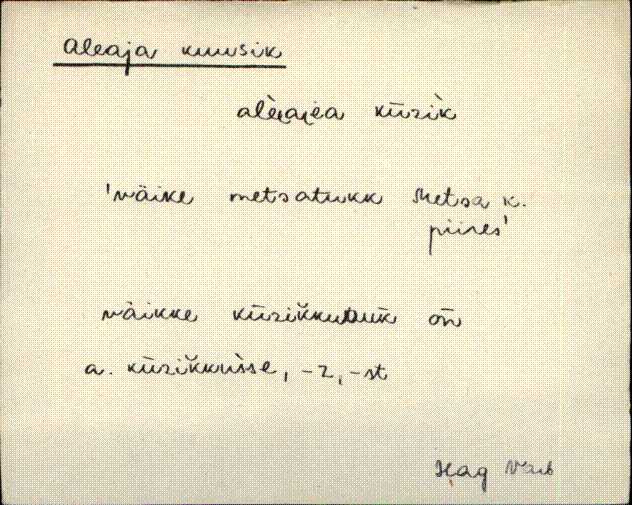 aleaja kuusik
aleaiea kūzik
'väike metsatukk Metsa k.
piires'
väikke kūzikkuD on
a. kūzikkuisse, -z, -st
Hag